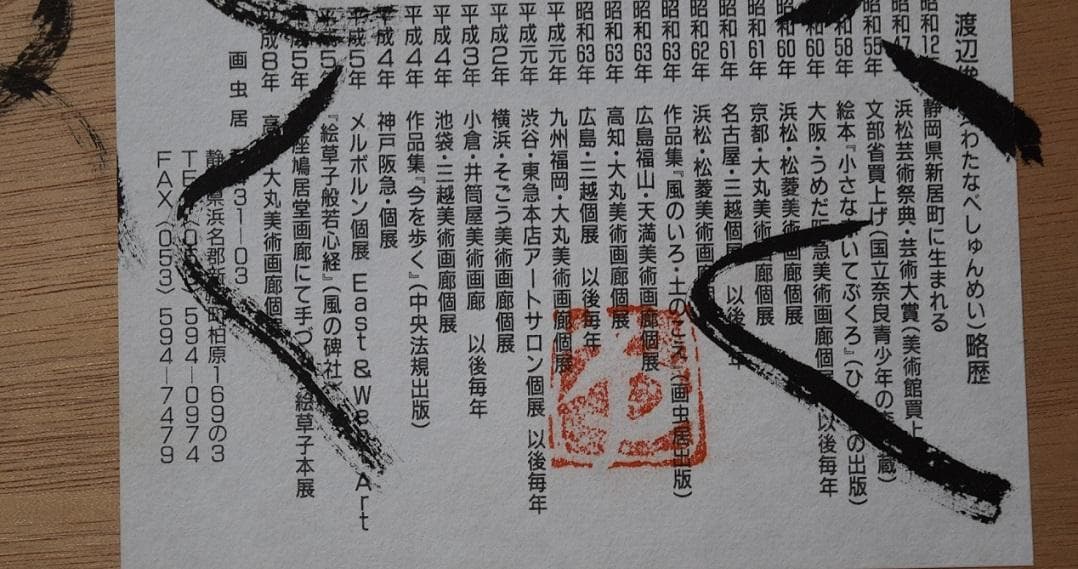 渡辺俊 わたなべしゅんめい）略歴
昭和12年 静岡県新居町に生まれる
昭和47 浜松芸術祭典・芸術大賞（美術館買上
昭和55年 文部省買上げ（国立奈良青少年の 蔵）
昭和58年 絵本『小さな いてぶくろ』（ひ の出版）
昭和60年 大阪・うめだ阪急美術画廊個展 以後毎年
昭和60年 浜松・松菱美術画廊個展
昭和61年 京都・大丸美術画廊個展
昭和61年 名古屋・三越個展 以後毎年
昭和62年 浜松・松菱美術画
昭和63年 作品集『風のいろ・土のこえ』（画虫居出版）
昭和63年 広島福山・天満美術画廊個展
昭和63年 高知・大丸美術画廊個展
昭和63年 広島・三越個展 以後毎年
平成元年 九州福岡・大丸美術画廊個展
平成元年 渋谷・東急本店アートサロン個展 以後毎年
平成2年 横浜・そごう美術画廊個展
平成3年 小倉・井筒屋美術画廊 以後毎年
平成4年 池袋・三越美術画廊個展
平成4年 作品集『今を歩く』（中央法規出版）
平成4年 神戸阪急・個展
平成5年 メルボルン個展 East & West Art
平成5 『絵草子般若心経』（風の碑社）
5年 座鳩居堂画廊にて手づ 絵草子本展
平成8年 高 大丸美術画廊個展
画虫居 31−03
静 県浜名郡新 町柏原169の3
TE 05 594−0974
FAX（053）594−7479